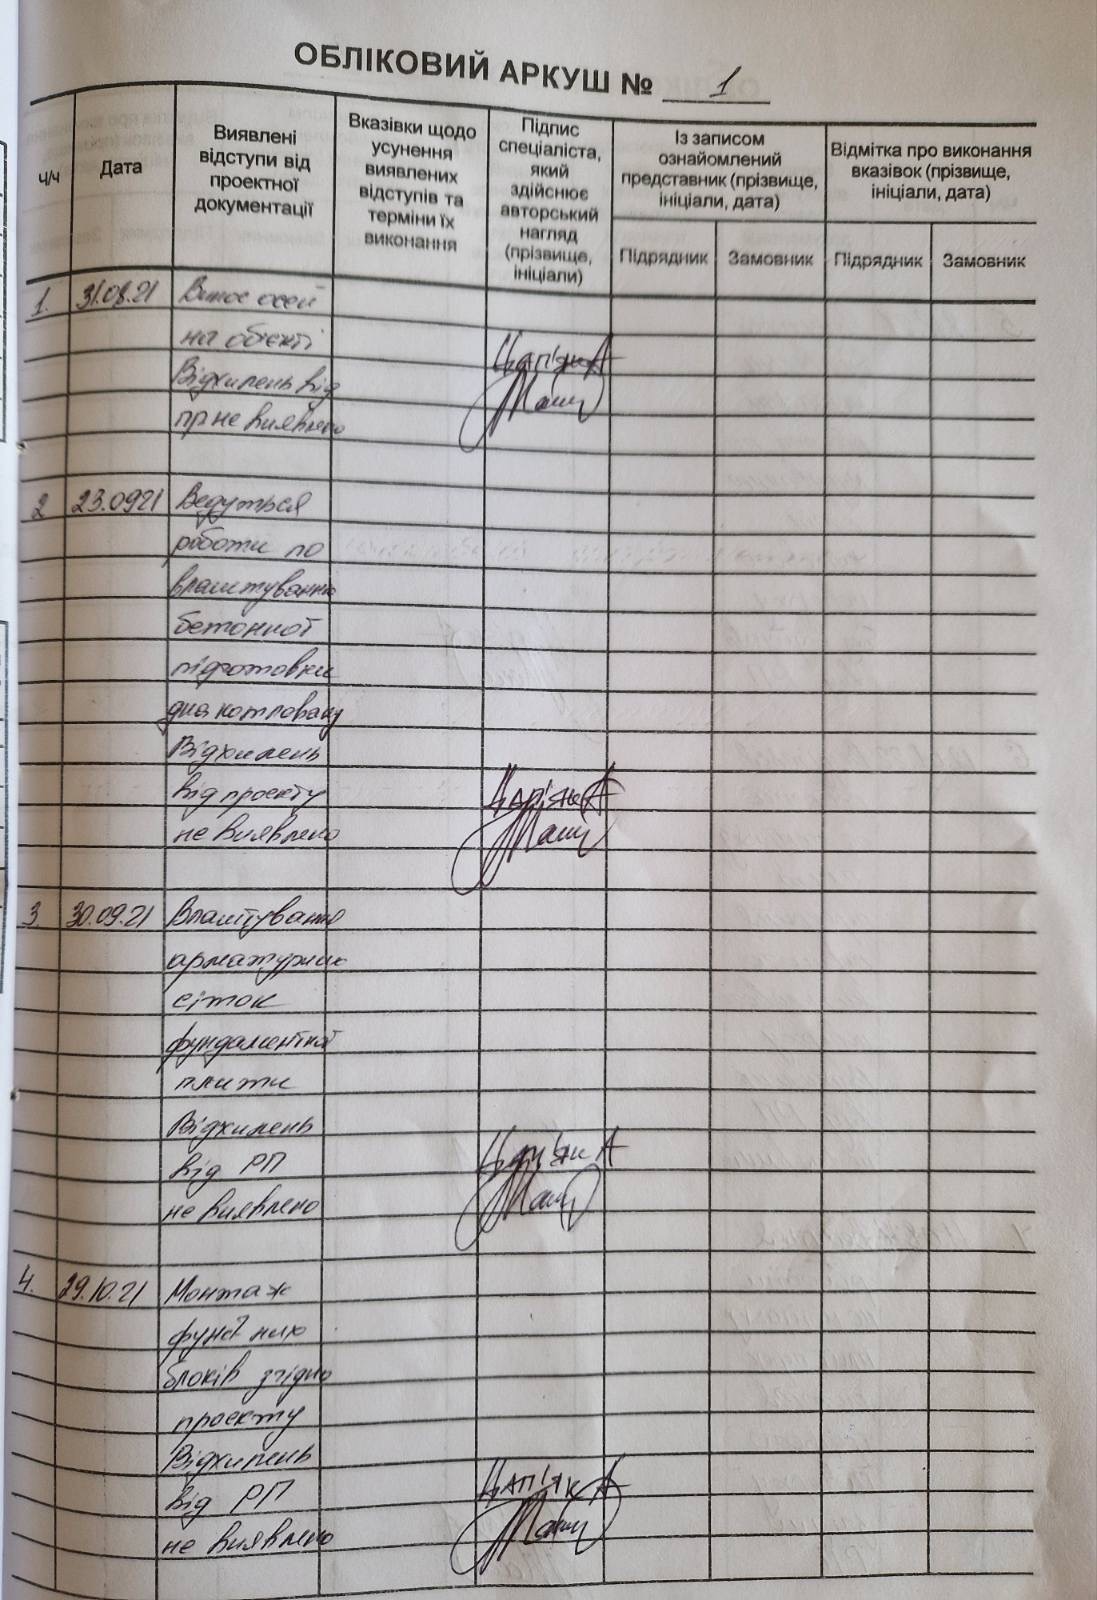 ОБЛІКОВИЙ АРКУШ № 1
ч/ч
Дата
Виявлені
відступи від
проектної
документації
Вказівки щодо
усунення
виявлених
відступів та
терміни їх
виконання
Підпис
спеціаліста,
який
здійснює
авторський
нагляд
(прізвище,
ініціали)
Із записом
ознайомлений
представник (прізвище,
ініціали, дата)
Відмітка про виконання
вказівок (прізвище,
ініціали, дата)
Підрядник
Замовник
Підрядник
Замовник
1. 31.08.21 Винос осей
на об'єкті
Відхилень від
пр не виявлено
Цап'як А
2 23.0921 Ведуться
роботи по
влаштуванню
бетонної
підготовки
дна котловану
Відхилень
від проекту
не виявлено
Цап'як А
3. 30.09.21 Влаштування
арматурних
сіток
фундаментної
плити
Відхилень
від РП
не виявлено
Цап'як А
4. 29.10.21 Монтаж
фунд них
блоків згідно
проекту
Відхилень
від РП
не виявлено
Цап'як А